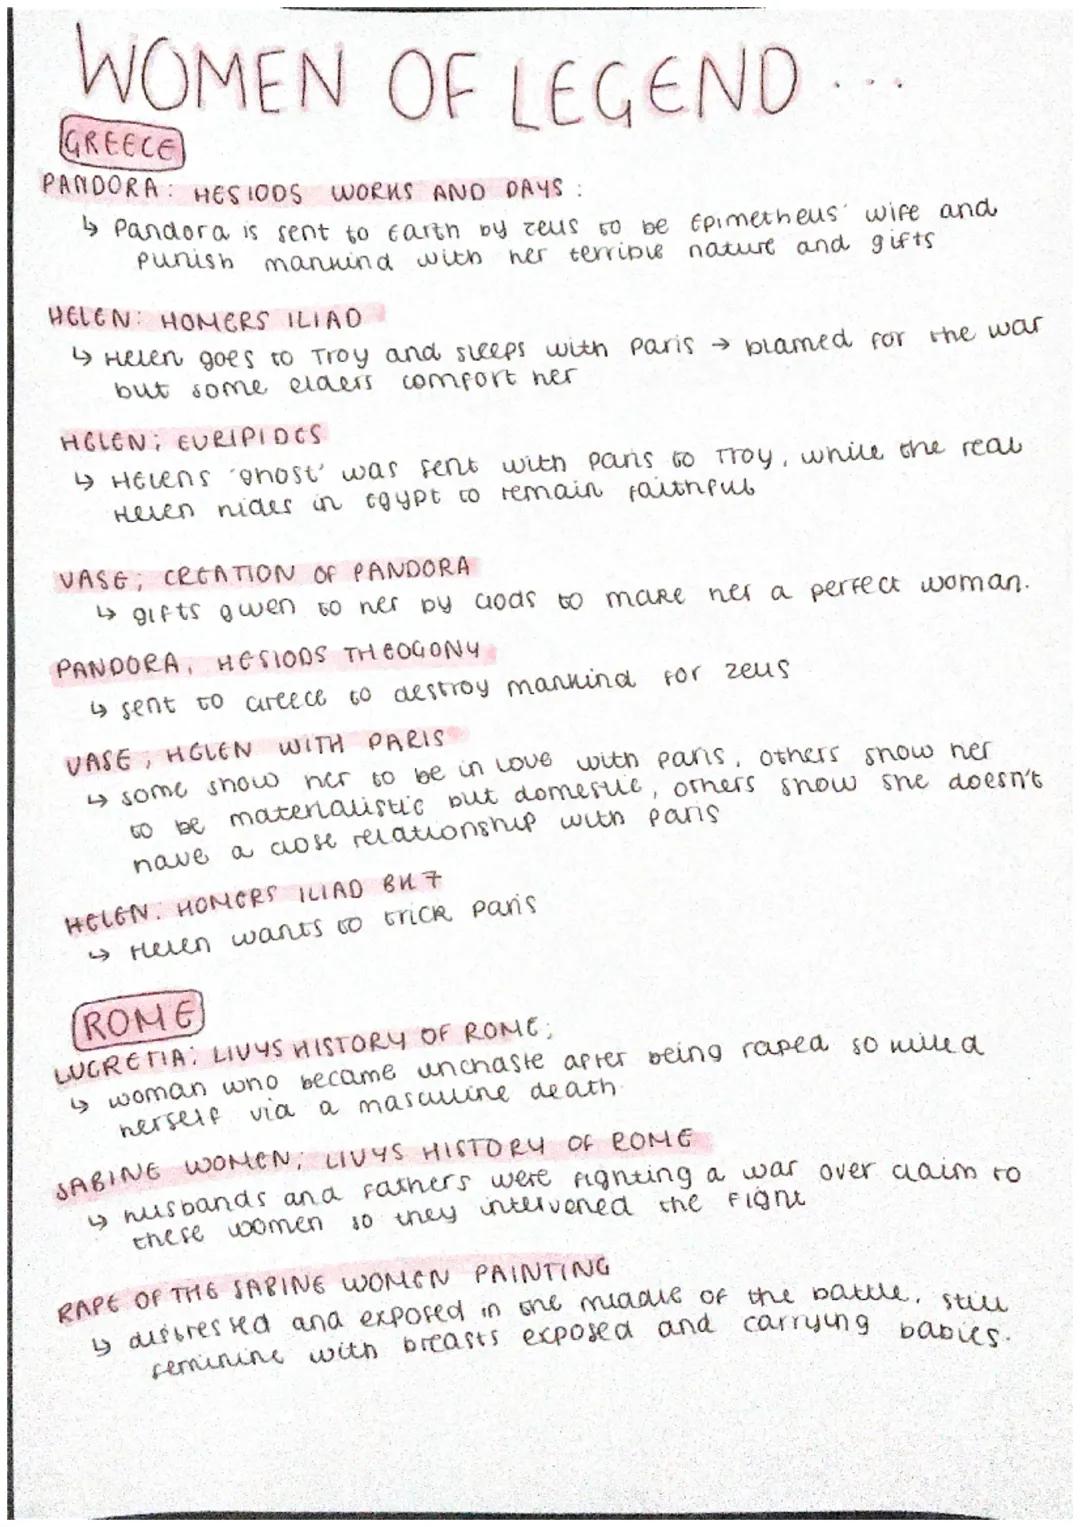 WOMEN OF LEGEND ...
GREECE
PANDORA: HESIODS WORKS AND DAYS:
↳ Pandora is sent to Earth by zeus to be Epimetheus' wife and
punish mankind with her terrible nature and gifts
HELEN: HOMERS ILIAD
↳ Helen goes to Troy and sleeps with Paris → blamed for the war
but some elders comfort her
HELEN; EURIPIDES
↳ Helens 'ghost' was sent with Paris to Troy, while the real
Helen hides in Egypt to remain faithful
VASE; CREATION OF PANDORA
↳ gifts given to her by Gods to make her a perfect woman.
PANDORA, HESIODS THEOGONY
↳ sent to Greece to destroy mankind for zeus
VASE, HELEN WITH PARIS
↳ some show her to be in love with Paris, others show her
to be materialistic but domestic, others show she doesn't
have a close relationship with Paris
HELEN: HOMERS ILIAD BK 7
↳ Helen wants to trick Paris
ROME
LUCRETIA: LIVYS HISTORY OF ROME;
↳ woman who became unchaste after being raped so killed
herself via a masculine death
SABINE WOMEN; LIVYS HISTORY OF ROME
↳ husbands and fathers were fighting a war over claim to
these women so they intervened the fight
RAPE OF THE SABINE WOMEN PAINTING
↳ distressed and exposed in the middle of the battle, still
feminine with breasts exposed and carrying babies.